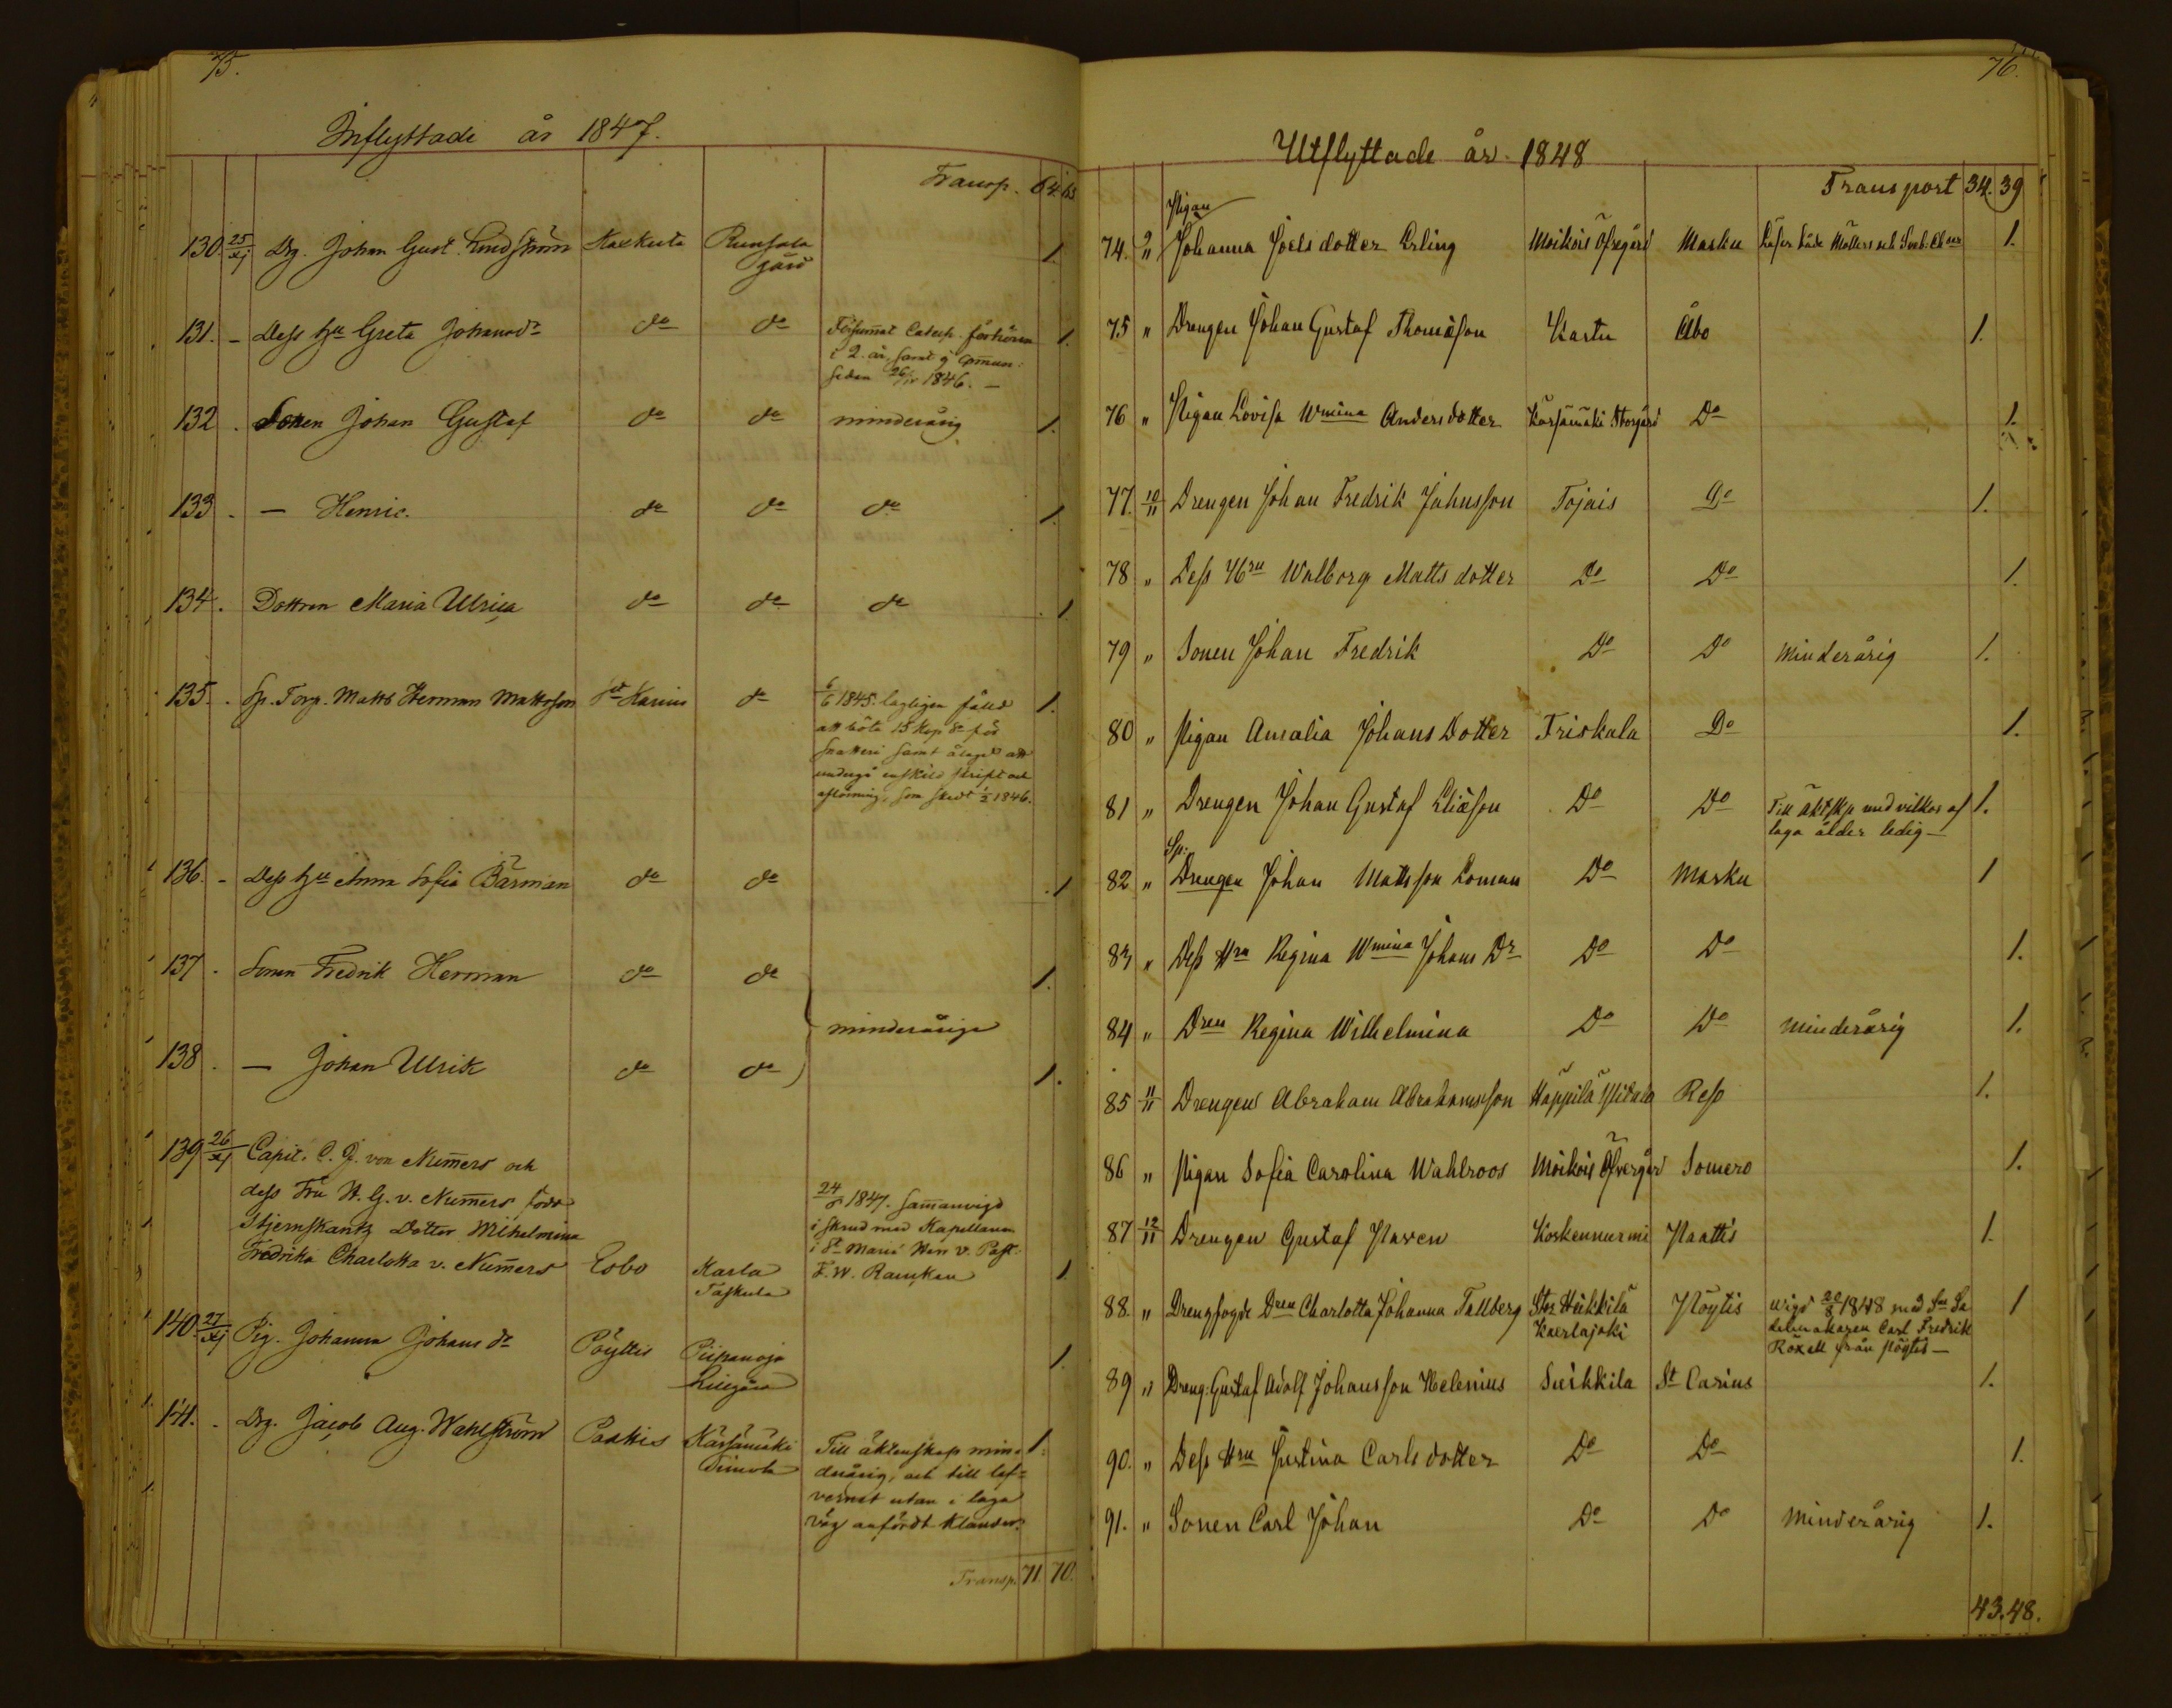 75.
Inflyttade år 1847.
Transp. 64. 63
130. 25/xj Drg. Johan Gust. Lindström Kaxkerta Runsala gård 1.
131. - Dess hu Greta Johansdr do do Försummat Catech. förhören 1.
i 2. år, samt ej commun:
sedan 26/IV 1846. —
132 . Sonen Johan Gustaf do do minderårig 1.
133 . — Henric. do do do 1.
134. Dottren Maria Ulrica do do do 1
135. . Sp. Torp. Matts Herman Mattsson St Karins do 6/6 1845. lagligen fälld 1.
att böta 15 kop Sr för
snatteri samt ålagd att
undergå enskild skrift och
aflösning, som skedt 1/2 1846.
136. - Dess hu Anna Sofia Bärman do do 1
137 . Sonen Fredrik Herman do do 1.
minderårige
138 . — Johan Ulrik do do 1.
139 26/xj Capit. C. J. von Numers och
dess Fru H. G. v. Numers född
Stjernskantz Dotter Wilhelmina
Fredrika Charlotta v. Numers Esbo Karla Taskula 1
24/8 1847. Sammanvigd
i skrud med Kapellanen
i St Marie Herr v. Past.
F. W. Ramken
140 27/xj Pig. Johanna Johans dr Pöyttis Piipanoja Lillgård 1.
141. . Drg. Jacob Aug. Wahlström Paattis Kärsämäki Timola Till äktenskap min= 1.
derårig, och till lef=
vernet utan i laga
väg anfördt klander.
Transp. 71. 70.
76.
Utflyttade år 1848
Transport 34. 39
Pigan
74. 9/11 Johanna Joels dotter Erling Moikois Öfvergård Masku 1.
75 " Drengen Johan Gustaf Thomasson Kastu Åbo 1.
76 " Pigan Lovisa Wmina Andersdotter Kärsämäki Storgård Do 1.
77. 10/11 Drengen Johan Fredrik Johnsson Tojais Do 1.
78 " Dess Hru Walborg Matts dotter Do Do 1.
79 " Sonen Johan Fredrik Do Do Minderårig 1.
80 " Pigan Amalia Johans Dotter Friskala Do 1.
81 " Drengen Johan Gustaf Eliasson Do Do Till äktskp med vilkor af 1.
laga ålder ledig —
Sp:
82 " Drengen Johan Mattsson Loman Do Masku 1
83 " Dess Hru Regina Wmina Johans Dr Do Do 1.
84 " Dren Regina Wilhelmina Do Do Minderårig 1.
85 11/11 Drengen Abraham Abrahamsson Häppilä Ylitalo Reso 1.
86 " Pigan Sofia Carolina Wahlroos Moikois Öfvergård Somero 1.
87 12/11 Drengen Gustaf Paven Koskennurmi Paattis 1.
88. " Drengfogde Dren Charlotta Johanna Tallberg Stor Heikkilä Kaerlajoki Pöytis wigd 20/8 1848 med Sn Sa 1
delmakaren Carl Fredrik
Röxell från Pöytis —
89 " Dreng. Gustaf Adolf Johansson Helenius Suikkila St Carins 1.
90. " Dess Hru Justina Carls dotter Do Do 1.
91. " Sonen Carl Johan Do Do Minderårig 1.
43. 48.